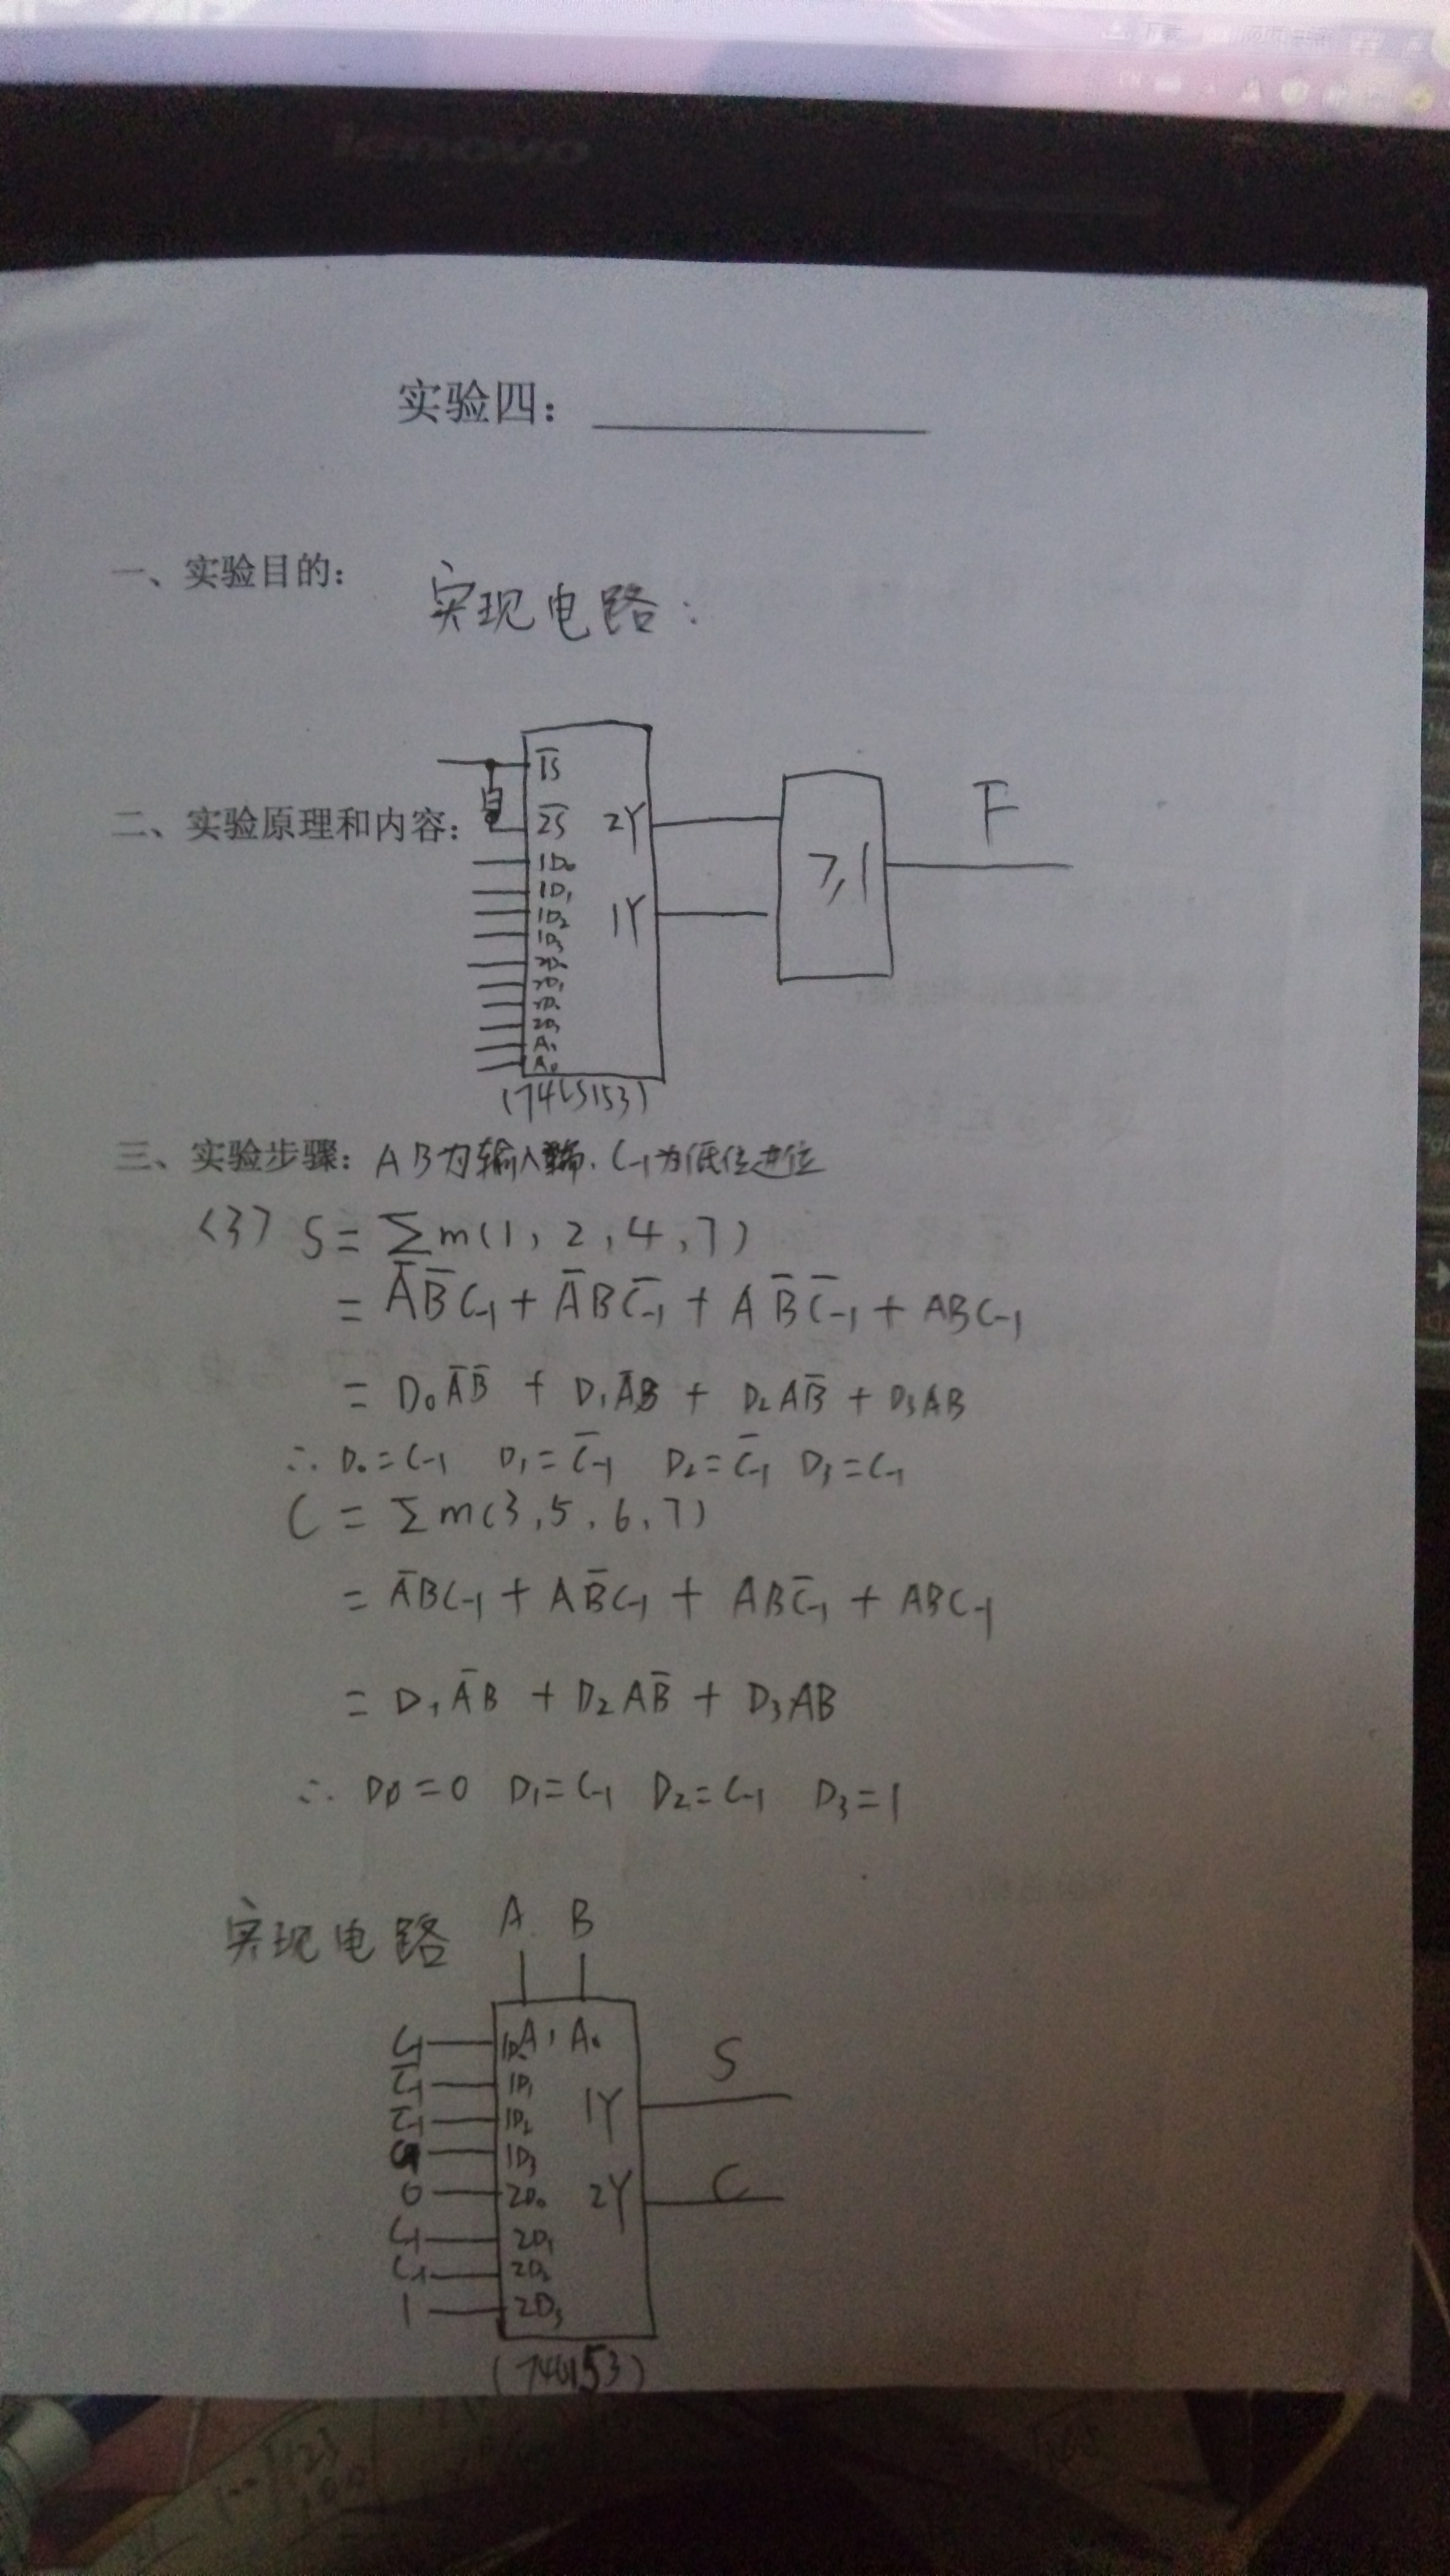 lenovo
实验四：
一、实验目的：
实现电路：
二、实验原理和内容：
1S̅
2S̅ 2Y
1D₀
1D₁
1D₂ 1Y
1D₃
2D₀
2D₁
2D₂
2D₃
A₁
A₀
≥1
F
(74LS153)
三、实验步骤：AB为输入端.C₋₁为低位进位
<3> S = Σm(1, 2, 4, 7)
= A̅B̅C₋₁ + A̅BC̅₋₁ + AB̅C̅₋₁ + ABC₋₁
= D₀A̅B̅ + D₁A̅B + D₂AB̅ + D₃AB
∴ D₀=C₋₁ D₁=C̅₋₁ D₂=C̅₋₁ D₃=C₋₁
C = Σm(3,5,6,7)
= A̅BC₋₁ + AB̅C₋₁ + ABC̅₋₁ + ABC₋₁
= D₁A̅B + D₂AB̅ + D₃AB
∴ D0=0 D₁=C₋₁ D₂=C₋₁ D₃=1
实现电路
A B
C₋₁ 1D₀ A₁ A₀
C̅₋₁ 1D₁ 1Y S
C̅₋₁ 1D₂
C₋₁ 1D₃
0 2D₀ 2Y C
C₋₁ 2D₁
C₋₁ 2D₂
1 2D₃
(74LS153)